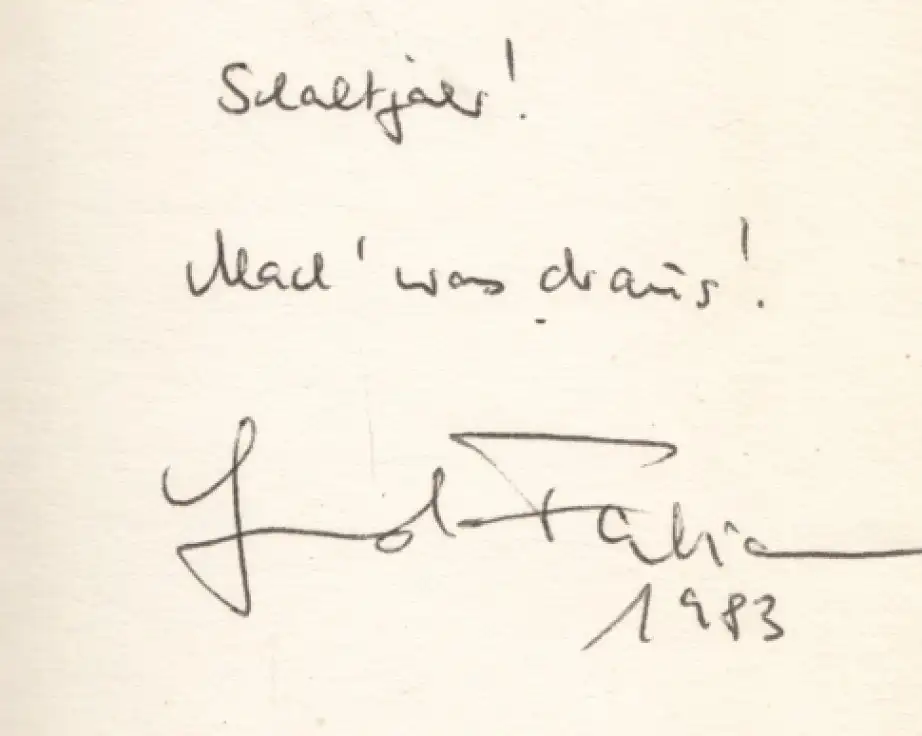 Schaltjahr!
Mach' was draus!
Fabian
1983